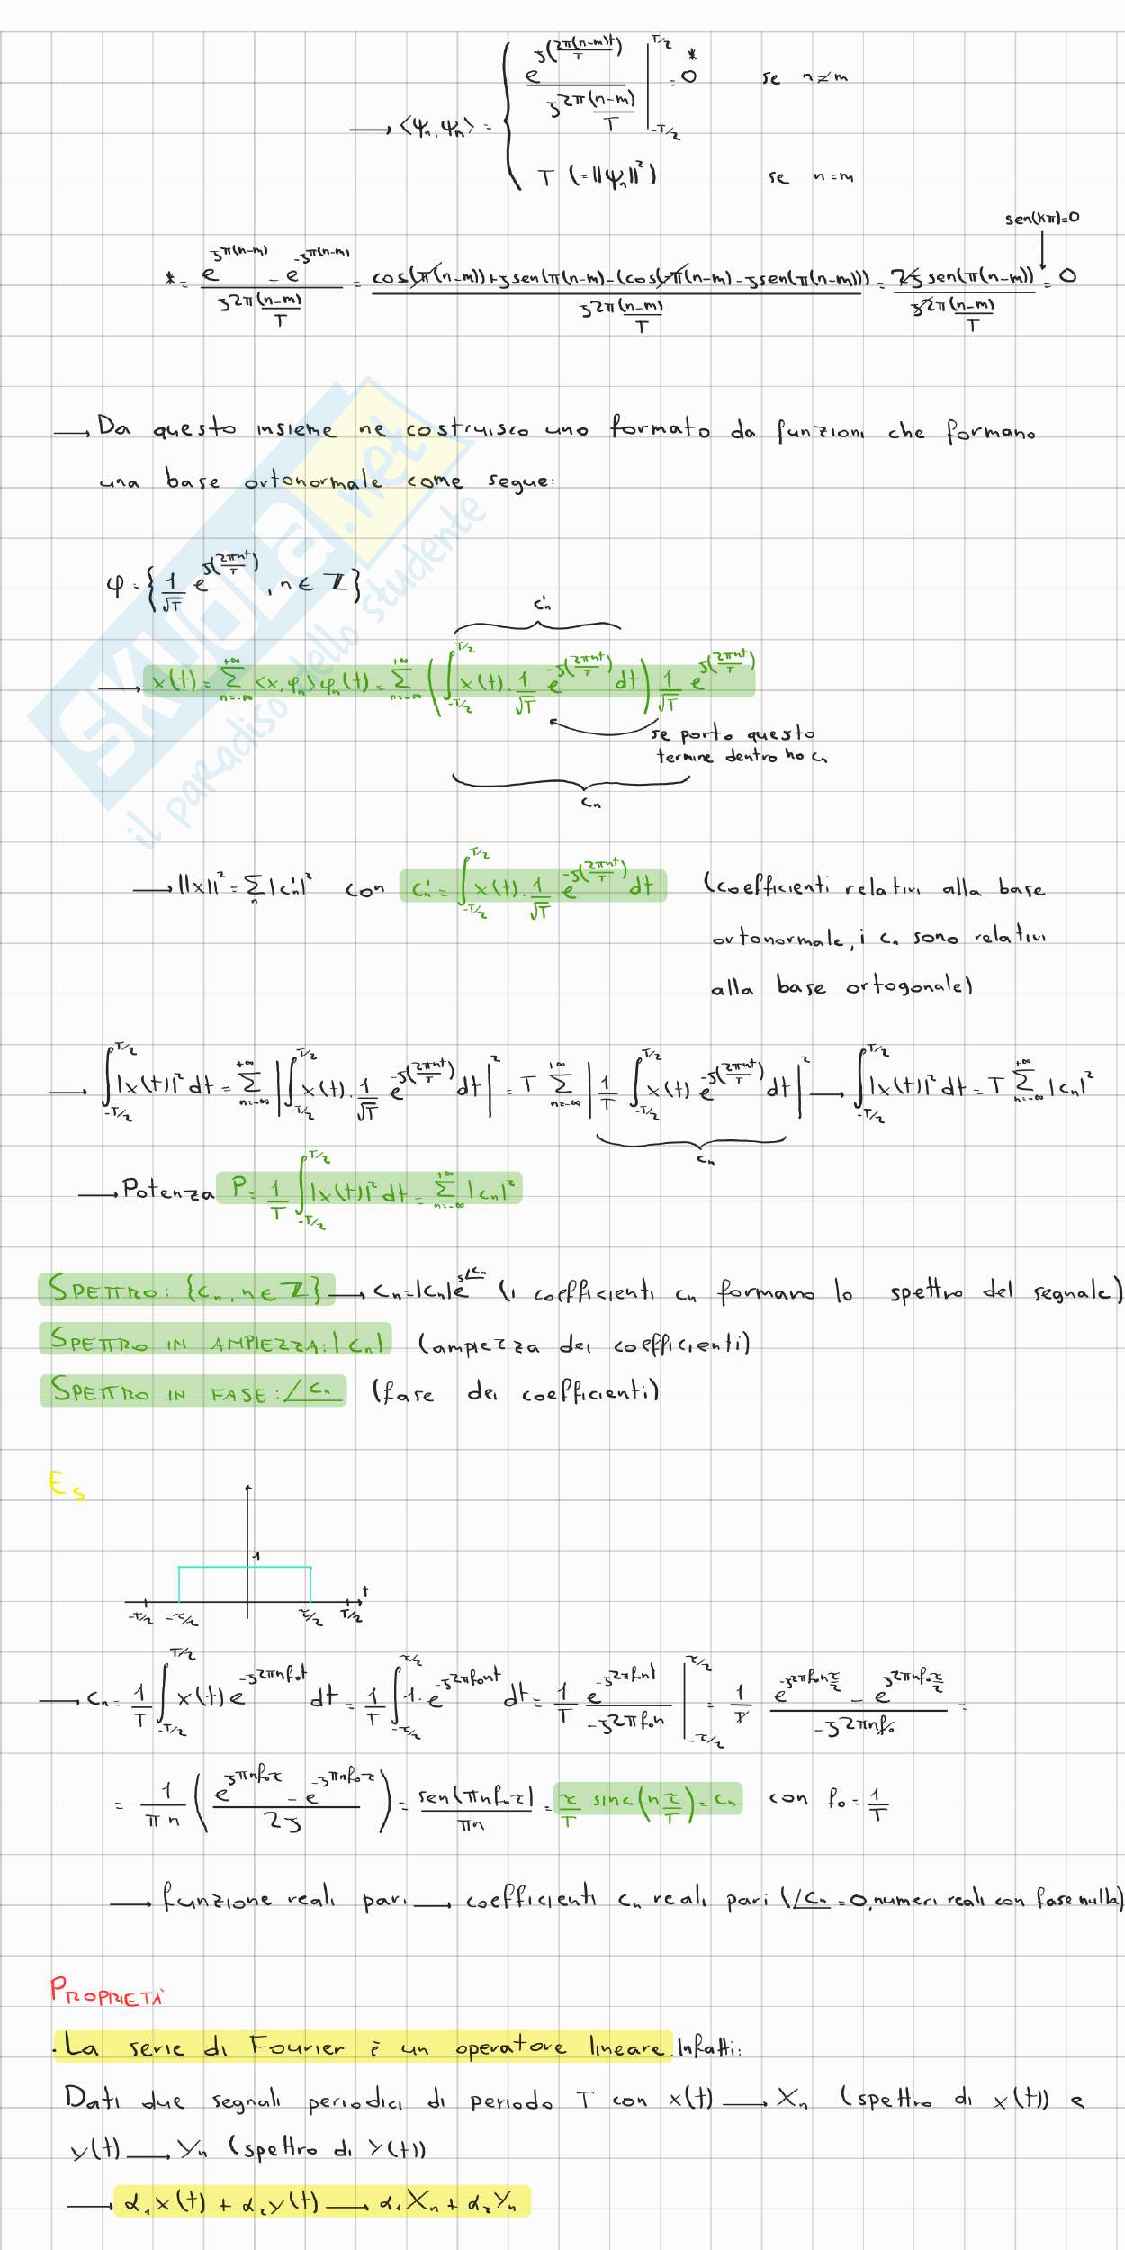 → <ψn, ψm> = { e^(j(2π(n-m)t/T)) / (j2π(n-m)/T) |_{-T/2}^{T/2} =* 0 se n≠m
T (=||ψn||²) se n=m
sen(kπ)=0
* = (e^(jπ(n-m)) - e^(-jπ(n-m))) / (j2π(n-m)/T) = (cos(π(n-m))+jsen(π(n-m)-(cos(-π(n-m)-jsen(π(n-m)))) / (j2π(n-m)/T) = 2j sen(π(n-m)) / (j2π(n-m)/T) = 0
→ Da questo insieme ne costruisco uno formato da funzioni che formano
una base ortonormale come segue:
φ = {1/√T e^(j(2πnt/T)), n ∈ Z}
c'n
→ x(t) = Σ_{n=-∞}^{+∞} <x, φn> φn(t) = Σ_{n=-∞}^{+∞} (∫_{-T/2}^{T/2} x(t)·1/√T e^(-j(2πnt/T)) dt) 1/√T e^(j(2πnt/T))
se porto questo
termine dentro ho cn
cn
→ ||x||² = Σ_n |c'n|² con c'n = ∫_{-T/2}^{T/2} x(t)·1/√T e^(-j(2πnt/T)) dt (coefficienti relativi alla base
ortonormale, i cn sono relativi
alla base ortogonale)
→ ∫_{-T/2}^{T/2} |x(t)|² dt = Σ_{n=-∞}^{+∞} |∫_{-T/2}^{T/2} x(t)·1/√T e^(-j(2πnt/T)) dt|² = T Σ_{n=-∞}^{+∞} |1/T ∫_{-T/2}^{T/2} x(t) e^(-j(2πnt/T)) dt|² → ∫_{-T/2}^{T/2} |x(t)|² dt = T Σ_{n=-∞}^{+∞} |cn|²
cn
→ Potenza P = 1/T ∫_{-T/2}^{T/2} |x(t)|² dt = Σ_{n=-∞}^{+∞} |cn|²
SPETTRO: {cn, n∈Z} → cn=|cn|e^(j∠cn) (i coefficienti cn formano lo spettro del segnale)
SPETTRO IN AMPIEZZA: |cn| (ampiezza dei coefficienti)
SPETTRO IN FASE: ∠cn (fase dei coefficienti)
Es
1
t
-T/2 -τ/2 τ/2 T/2
→ cn = 1/T ∫_{-T/2}^{T/2} x(t) e^(-j2πnf₀t) dt = 1/T ∫_{-τ/2}^{τ/2} 1·e^(-j2πf₀nt) dt = 1/T e^(-j2πf₀nt) / (-j2πf₀n) |_{-τ/2}^{τ/2} = 1/T (e^(-j2πf₀nτ/2) - e^(j2πnf₀τ/2)) / (-j2πnf₀) =
= 1/πn ((e^(jπnf₀τ) - e^(-jπnf₀τ)) / 2j) = sen(πnf₀τ)/πn = τ/T sinc(n τ/T) = cn con f₀ = 1/T
→ funzione reali pari → coefficienti cn reali pari (∠cn = 0, numeri reali con fase nulla)
PROPRIETÀ
. La serie di Fourier è un operatore lineare. Infatti:
Dati due segnali periodici di periodo T con x(t) → Xn (spettro di x(t)) e
y(t) → Yn (spettro di Y(t))
→ α₁x(t) + α₂y(t) → α₁Xn + α₂Yn
SKUOLA.net
il paradiso dello studente